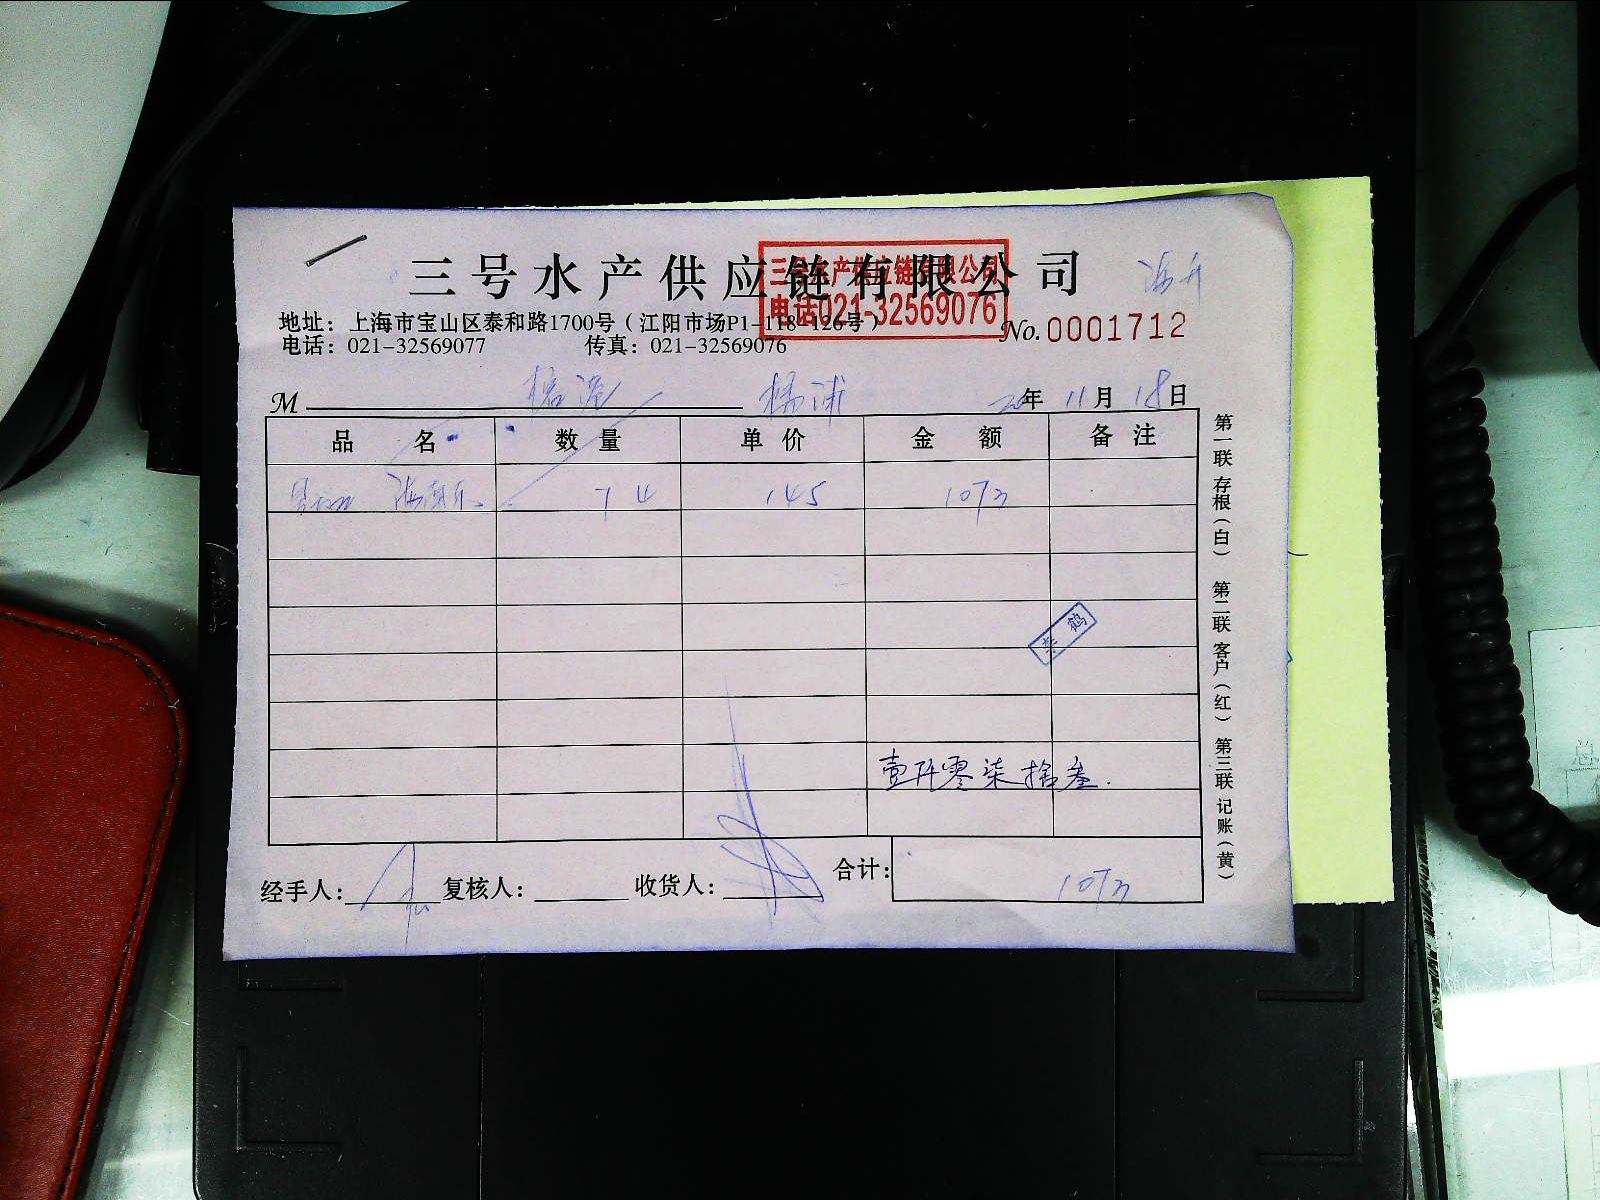 三号水产供应链有限公司
三号水产供应链有限公司
电话021-32569076
地址：上海市宝山区泰和路1700号（江阳市场P1-118-126号）
电话：021-32569077 传真：021-32569076
No.0001712
M 杨浦 20年 11月 18日
品 名 数 量 单 价 金 额 备 注
7 4 145 1073
李鹤
壹仟零柒拾叁
经手人： 复核人： 收货人： 合计： 1073
第一联 存根（白） 第二联 客户（红） 第三联 记账（黄）